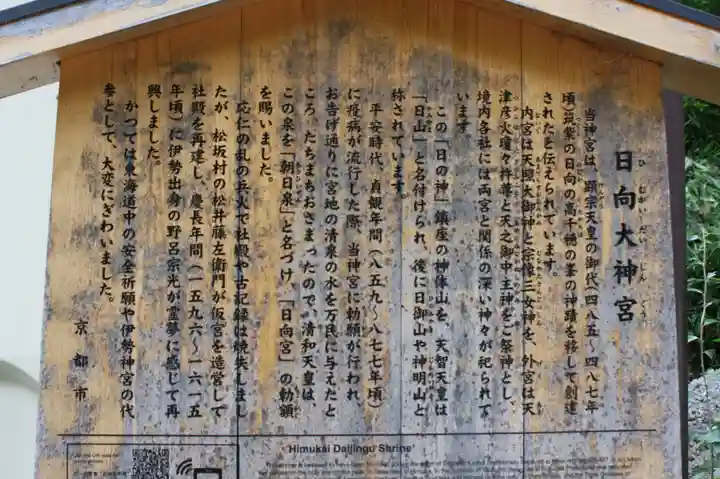 日向大神宮
ひむかいだいじんぐう
当神宮は、顕宗天皇の御代(四八五~四八七年
頃)筑紫の日向の高千穂の峯の神蹟を移して創建
されたと伝えられています。
内宮は天照大御神と宗像三女神を、外宮は天
津彦火瓊々杵尊と天之御中主神をご祭神とし、
境内各社には両宮と関係の深い神々が祀られて
います。
この「日の神」鎮座の神体山を、天智天皇は
「日山」と名付けられ、後に日御山や神明山と
称されています。
平安時代、貞観年間(八五九~八七七年頃)
に疫病が流行した際、当神宮に勅願が行われ、
お告げ通りに宮地の清泉の水を万民に与えたと
ころ、たちまちおさまったので、清和天皇は、
この泉を「朝日泉」と名づけ、「日向宮」の勅額
を賜いました。
応仁の乱の兵火で社殿や古記録は焼失しまし
たが、松坂村の松井藤左衛門が仮宮を造営して
社殿を再建し、慶長年間(一五九六~一六一五
年頃)に伊勢出身の野呂宗光が霊夢に感じて再
興しました。
かつては東海道中の安全祈願や伊勢神宮の代
参として、大変にぎわいました。
京都市
"Himukai Daijingu Shrine"